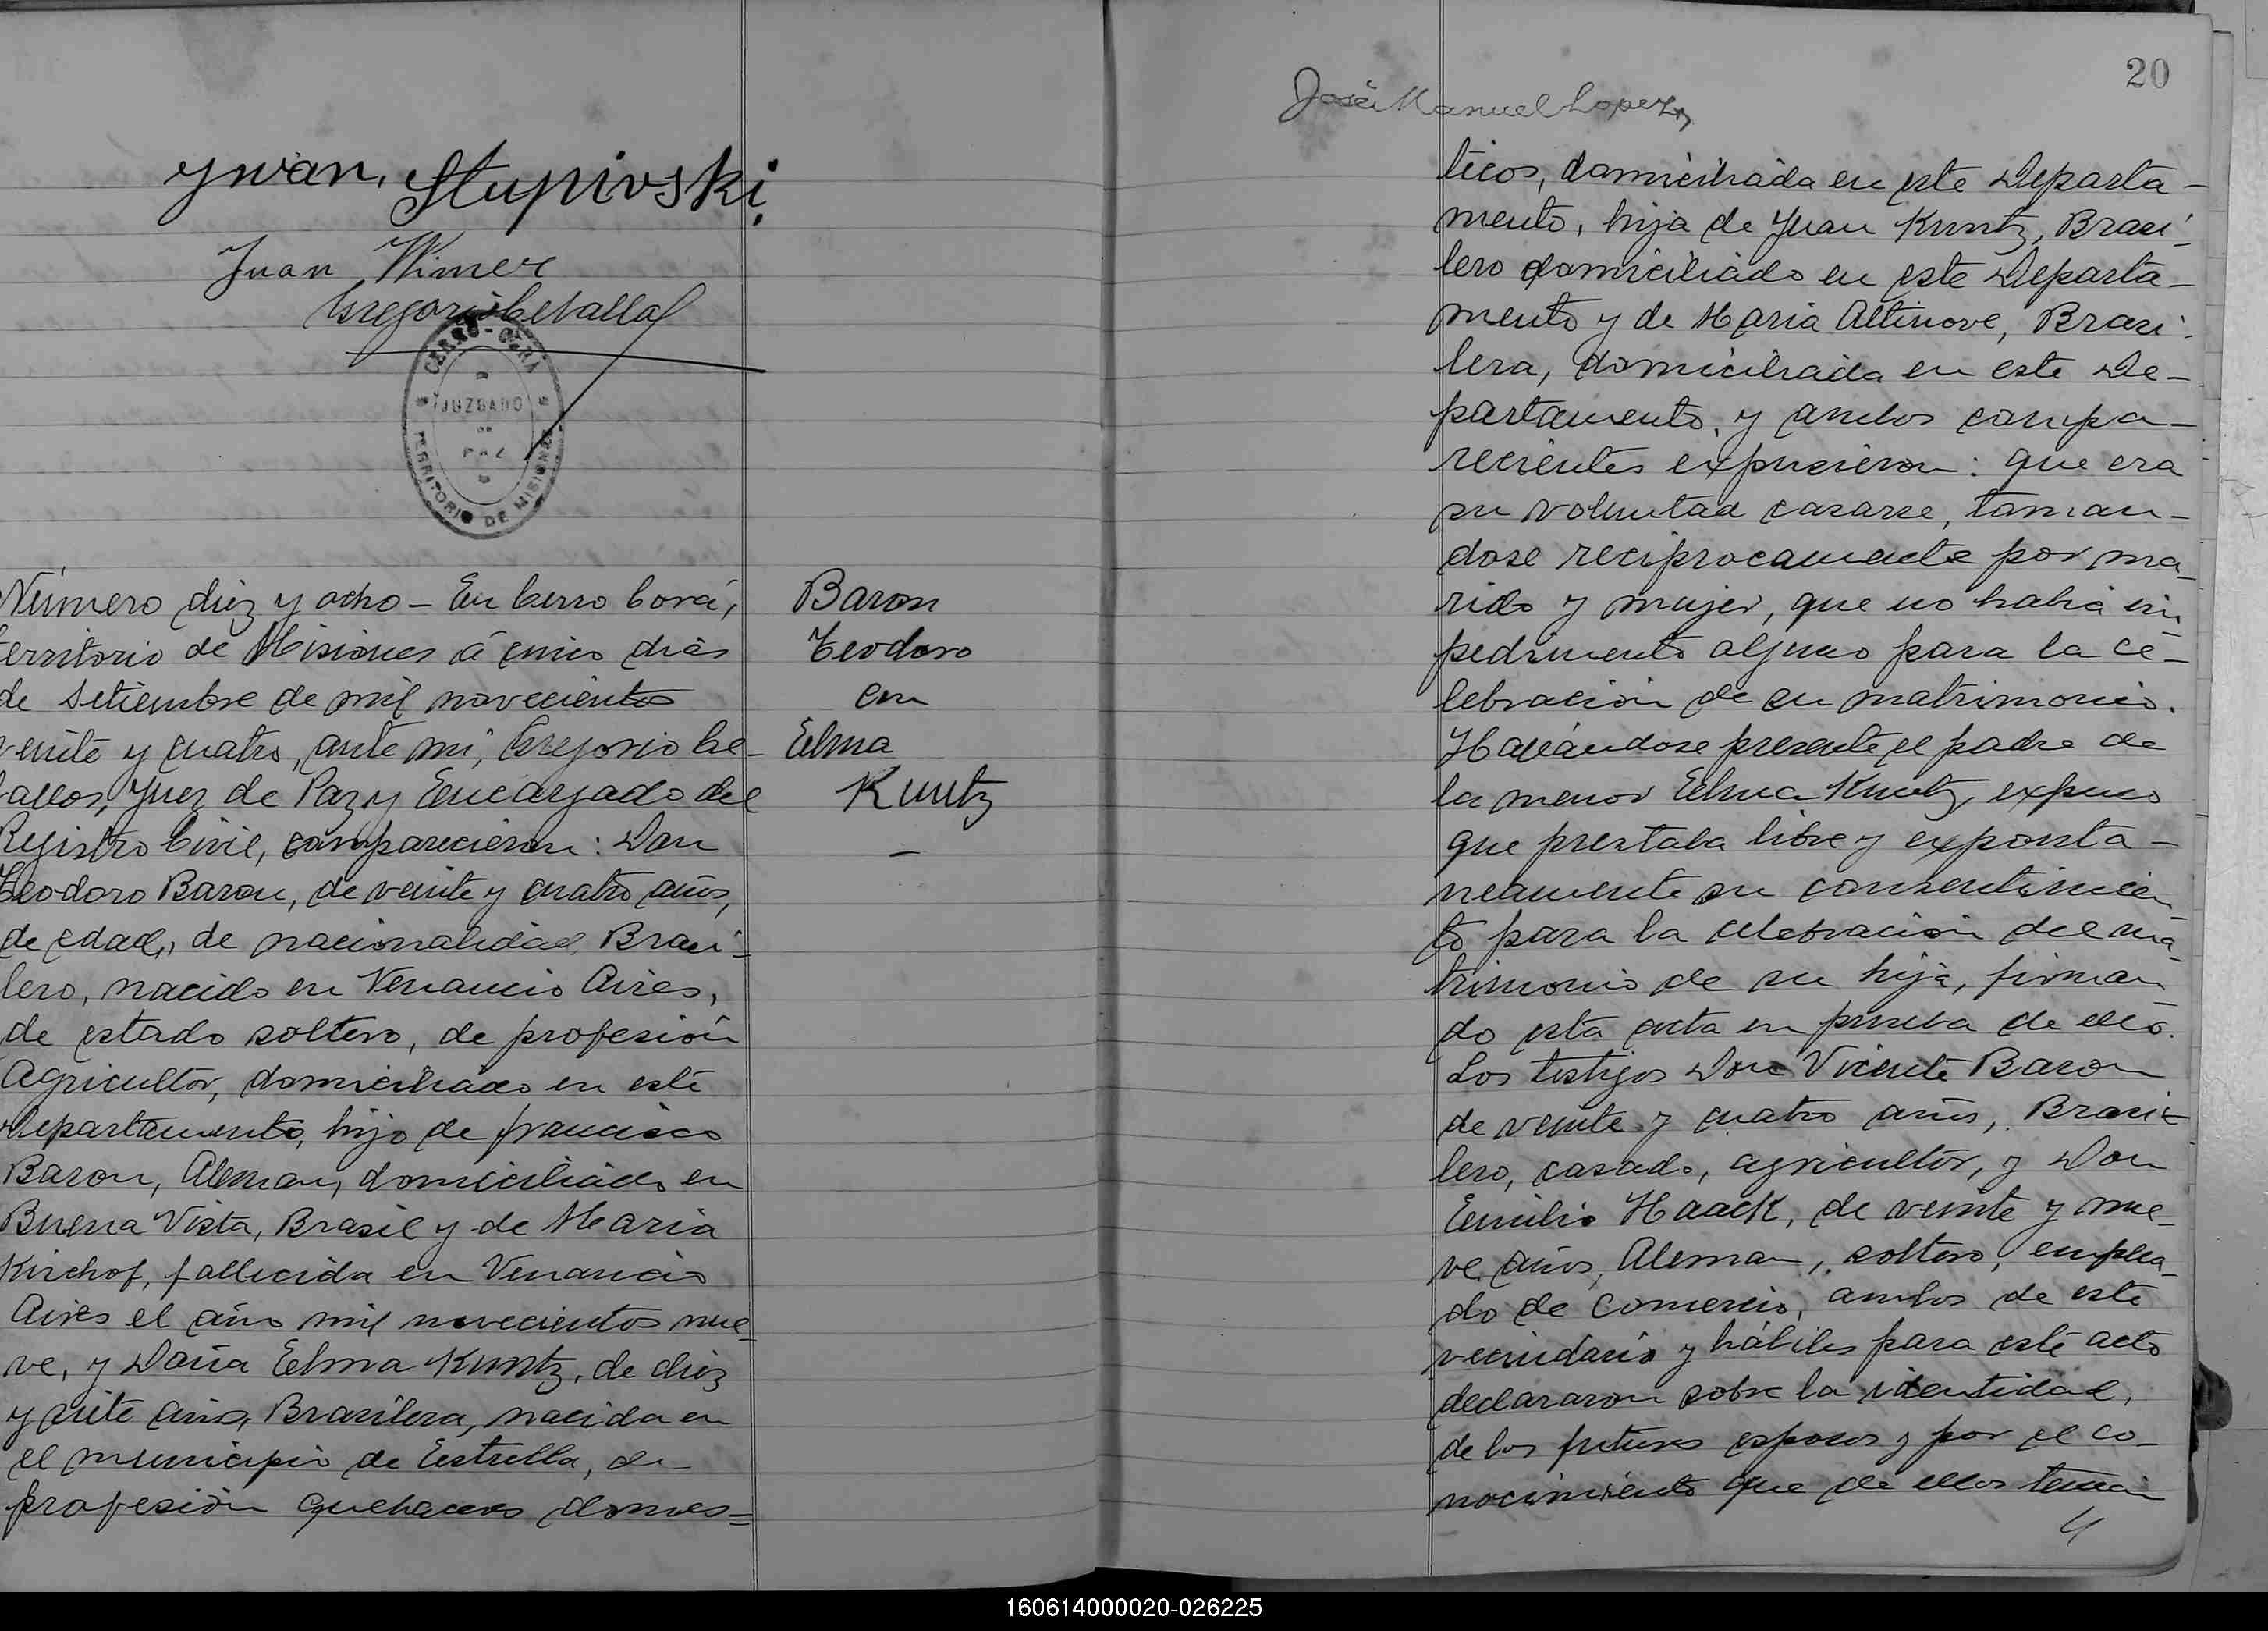 Ywan. Stupivski.
Juan Wimer
Gregorio Cevallos
CERRO-CORÁ
JUZGADO
DE
PAZ
TERRITORIO DE MISIONES
Número diez y ocho - En Cerro Corá,
territorio de Misiones á cinco dias
de Setiembre de mil novecientos
veinte y cuatro, ante mi, Gregorio Ce-
vallos, Juez de Paz y Encargado del
Registro Civil, comparecieron: Don
Teodoro Baron, de veinte y cuatro años,
de edad, de nacionalidad Brasi-
lero, nacido en Venancio Aires,
de estado soltero, de profesión
Agricultor, domiciliado en este
Departamento, hijo de francisco
Baron, Aleman, domiciliado en
Buena Vista, Brasil y de Maria
Kirchof, fallecida en Venancio
Aires el año mil novecientos nue-
ve, y Doña Elma Kuntz, de diez
y siete años, Brasilera, nacida en
el municipio de Estrella, de
profesión quehaceres domes=
Baron
Teodoro
con
Elma
Kuntz
-
20
José Manuel Lopez
ticos, domiciliada en este Departa-
mento, hija de Juan Kuntz, Brasi-
lero domiciliado en este Departa-
mento y de Maria Altinove, Brasi-
lera, domiciliada en este De-
partamento, y ambos compa-
recientes expusieron: que era
su voluntad casarse, toman-
dose reciprocamente por ma-
rido y mujer, que no habia im
pedimento alguno para la ce-
lebracion de su matrimonio.
Hallándose presente el padre de
la menor Elma Kuntz, expuso
que prestaba libre y exponta-
neamente su consentimien
to para la celebracion del ma-
trimonio de su hija, firman
do esta acta en prueba de ello.
Los testigos Don Vicente Baron
de veinte y cuatro años, Brasi-
lero, casado, agricultor, y Don
Emilio Haack, de veinte y nue-
ve años, Aleman, soltero, emplea-
do de Comercio, ambos de este
vecindario y hábiles para este acto
declararon sobre la identidad,
de los futuros esposos y por el co-
nocimiento que de ellos tenian
160614000020-026225